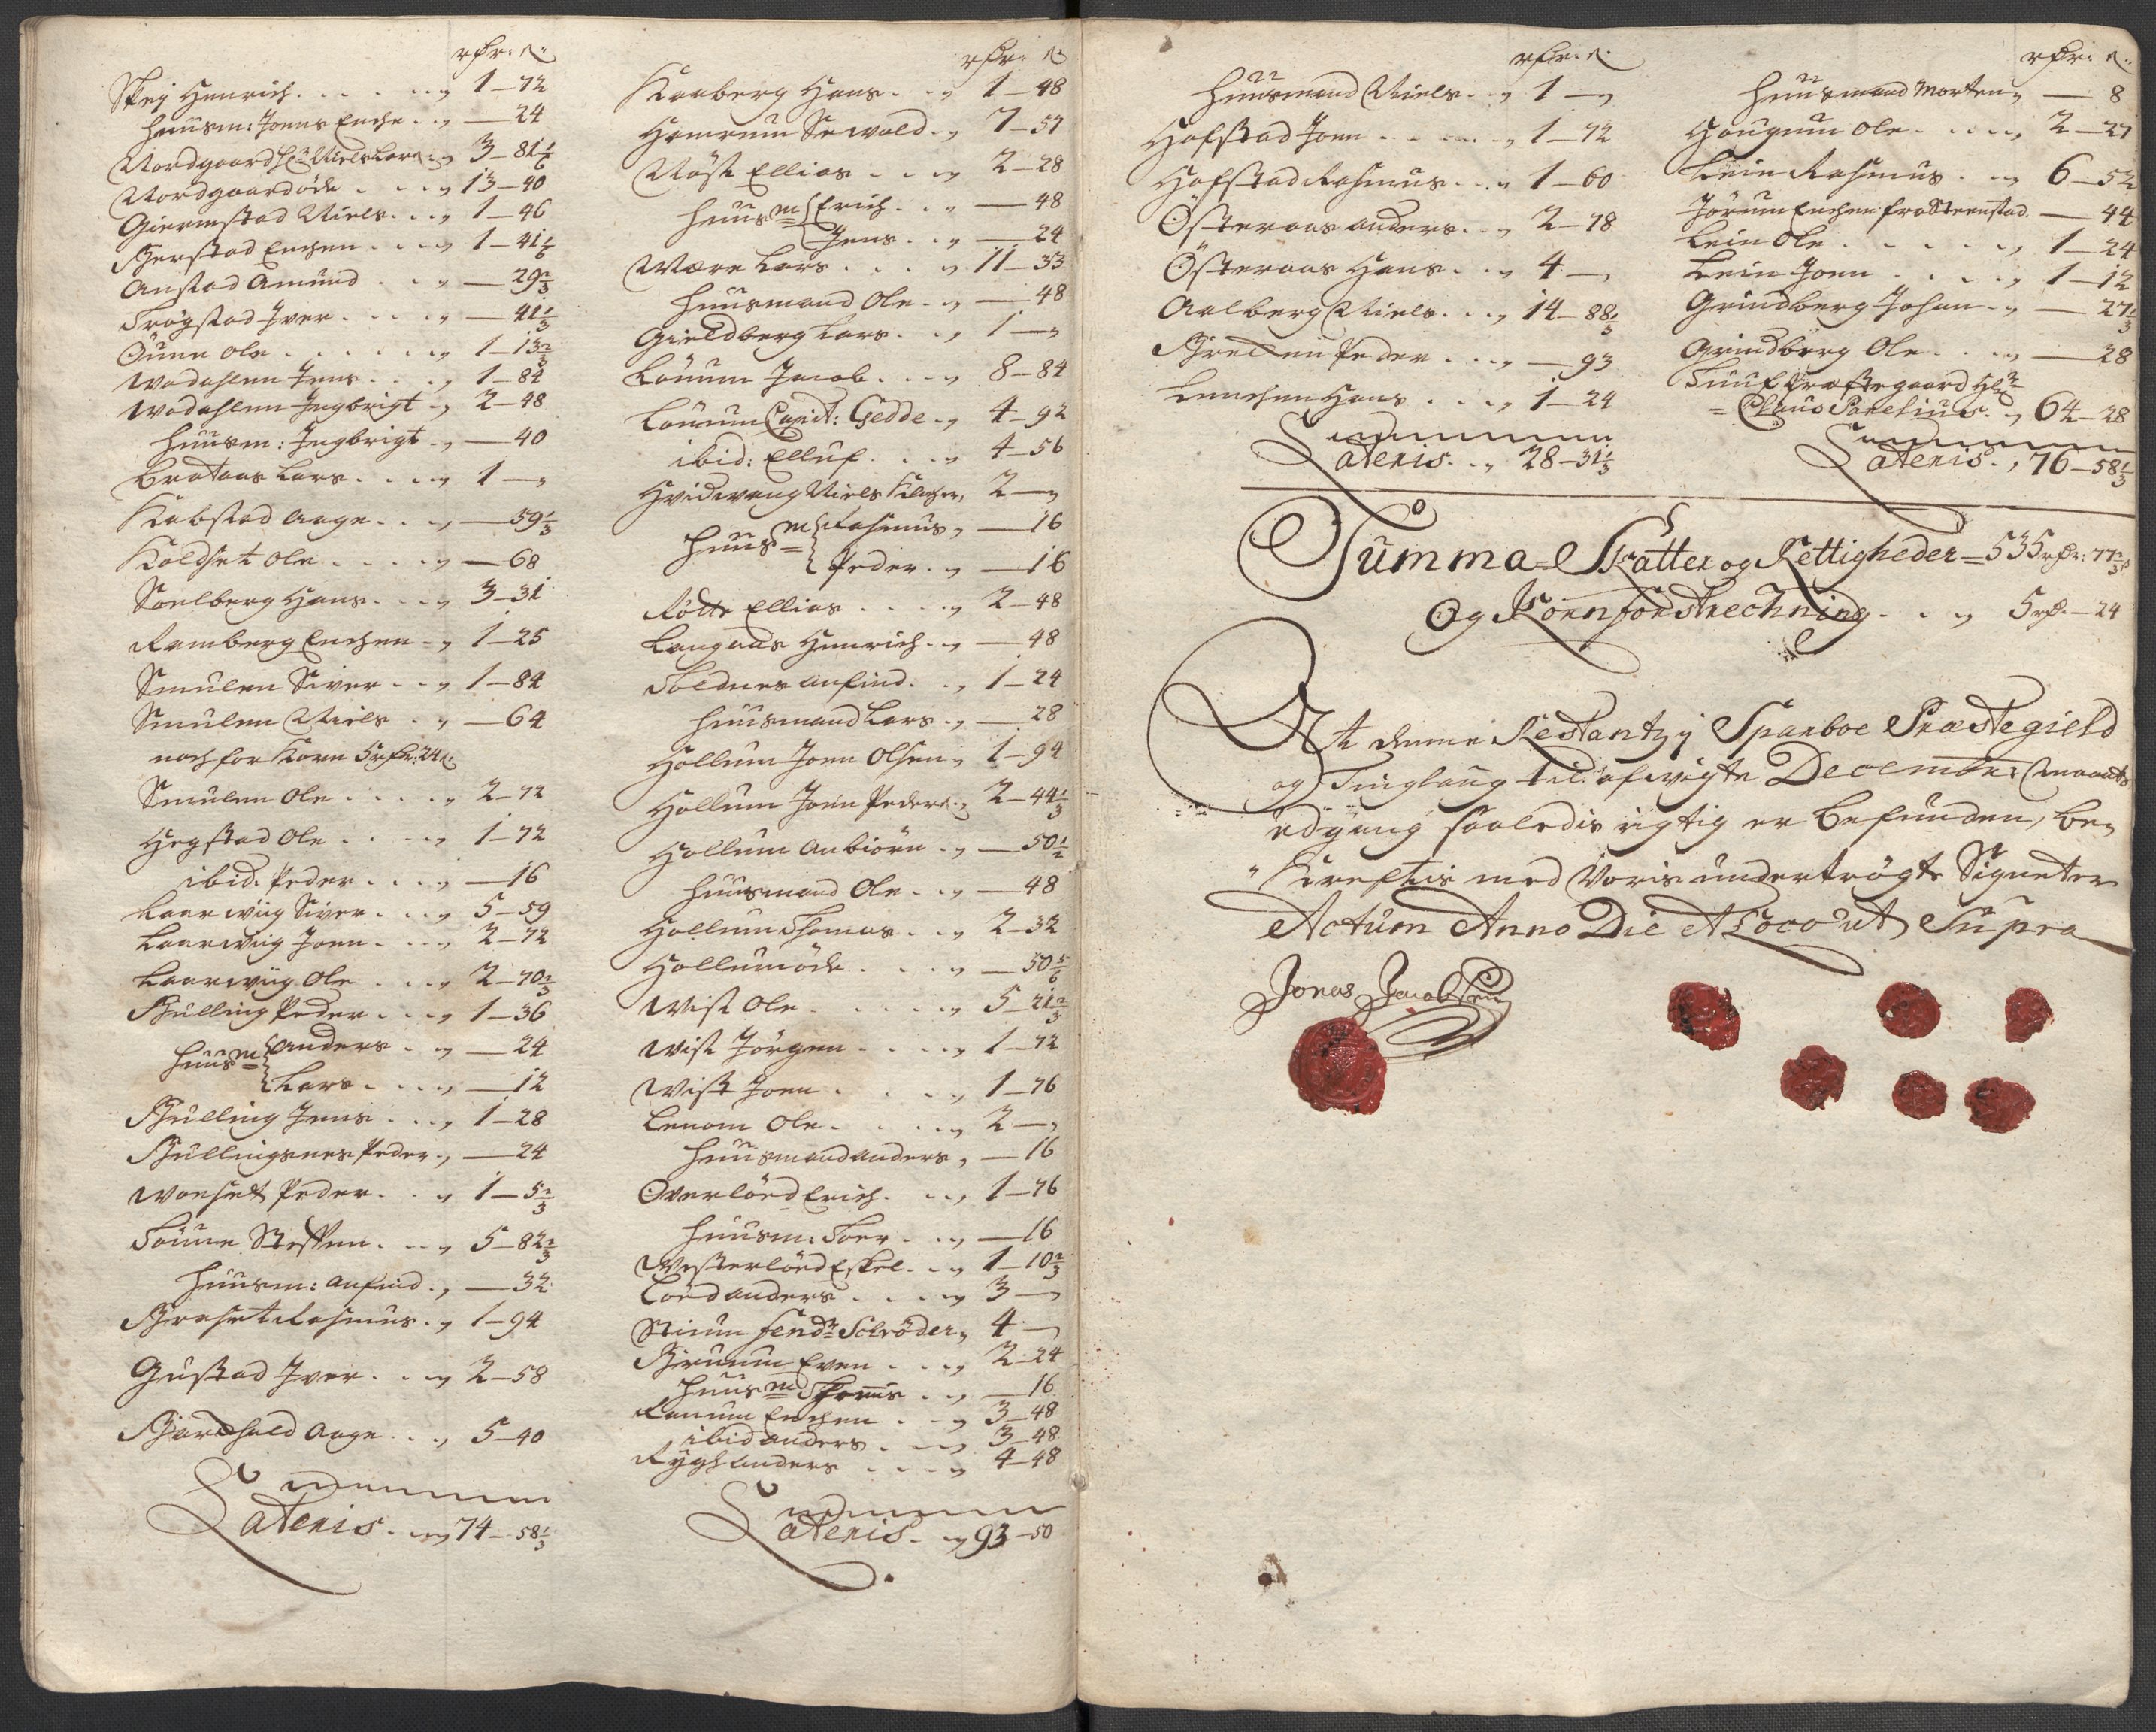 rdr: s:
Skej Henrich . . . . . „ 1–72
huusm: Joens Enche . . „ —24
Nordgaard Hr: Niels Lars: „ 3–81 1/6
Nordgaardøde . . . „ 13–40
Giermstad Niels . . „ 1–46
Kierstad Enchen . . . „ 1–41 1/6
Anstad Amund . . „ —29 2/3
Trøgstad Iver . . . . „ —41 1/3
Øune Ole . . . . . . „ 1–13 2/3
Wadahlen Jens . . . „ 1–84
Wadahlen Ingbrigt „ 2–48
huusm: Ingbrigt „ —40
Brataas Lars . . . . „ 1—„
Kabstad Aage . . . „ —59 1/3
Koldset Ole . . . . . „ —68
Soelberg Hans . . . „ 3–31
Ramberg Enchen „ 1–25
Smulen Siver . . . „ 1–84
Smulen Niels . . „ —64
noch for Korn 5 rdr: 24 s.
Smulen Ole . . . . . „ 2–72
Hegstad Ole . . . . „ 1–72
ibid: Peder . . . . „ —16
Laarwiig Siver . . . „ 5–59
Laarwiig Joen . . . „ 2–72
Laarwiig Ole . . . „ 2–70 2/3
Kulling Peder . . . „ 1–36
huusm { Anders . . „ —24
{ Lars . . . . „ —12
Kulling Jens . . . „ 1–28
Kullingsnes Peder „ —24
Woeset Peder . . . „ 1–5 2/3
Foune Steffen . . . „ 5–82 2/3
huusm: Anfind „ —32
Braset Rasmus „ 1–94
Gustad Iver . . . „ 2–58
Hald Aage . . „ 5–40
Lateris . . „ 74–58 1/3
rdr: s
Kaaberg Hans . . „ 1–48
Hamrum Sewald „ 7–57
Røst Ellias . . . . „ 2–28
huusm { Erich . . „ —48
{ Jens . . „ —24
Wære Lars . . . . „ 11–33
huusmand Ole „ —48
Gieldberg Lars . . „ 1—„
Lønum Jacob . . . „ 8–84
Lønum Capit: Gedde „ 4–92
ibid: Elluf . . . „ 4–56
Hvidwang Niels „ 2—„
huusm { Rasmus „ —16
{ Peder „ —16
Røtte Ellias . . . . „ 2–48
Langaas Henrich „ —48
Toldnes Anfind . . „ 1–24
huusmand Lars „ —28
Hollum Joen Olsen „ 1–94
Hollum Joen Peders: „ 2–44 1/3
Hollum Anbiørn „ —50 1/2
huusmand Ole „ —48
Hollum Thomas . . „ 2–32
Hollumøde . . . . „ —50 5/6
Wist Ole . . . . . „ 5–21 2/3
Wist Jørgen . . . . „ 1–72
Wist Joen . . . . . „ 1–76
Lenom Ole . . . . . „ 2—„
huusmand Anders „ —16
Øwerlöed Erich . . „ 1–76
huusm: Toer . . „ —16
Westerlöed Eskel . . „ 1–10 2/3
Loed Anders . . . . „ 3—„
Stiene Fendr: Schrøder „ 4—„
Birum Even . . . . „ 2–24
huusm Thomis . . „ —16
Ranum Enchen . . „ 3–48
ibid Anders . . . „ 3–48
Rygh Anders . . . „ 4–48
Lateris . . „ 93–50
rdr: s:
huusmand Niels „ 1—„
Hofstad Joen . . . . „ 1–72
Hofstad Rasmus . . „ 1–60
Østeraas Anders . . „ 2–78
Østeraas Hans . . „ 4—„
Aalberg Niels . . „ 14–88 1/3
Peder . . . „ —93
Lunchen Hans . . . „ 1–24
Lateris . . „ 28–31 1/3
rdr: s:
huusmand Morten „ —8
Haugum Ole . . . . „ 2–27
Lein Rasmus . . „ 6–52
Jørum Enchen fra Steenstad —44
Lein Ole . . . . . „ 1–24
Lein Joen . . . . „ 1–12
Grindberg Johan „ —27 1/3
Grindberg Ole . . . „ —28
Tuuf Præstegaard Hr:
= Claus Parelius „ 64–28
Lateris . „ 76–58 1/3
Summa = Skatter og Rettigheder = 535 rdr: 77 2/3 s
Og Kornforstrechning . . „ 5 rd. –24
At denne Restantz i Sparboe Præstegield
og Tinglaug til afwigte December Maanets
udgang saaledis rigtig er befunden, be,
„ Kreftis med Voris undertrögte Signeter
Actum Anno Die et Loco ut Supra
Jonas Jacobsen